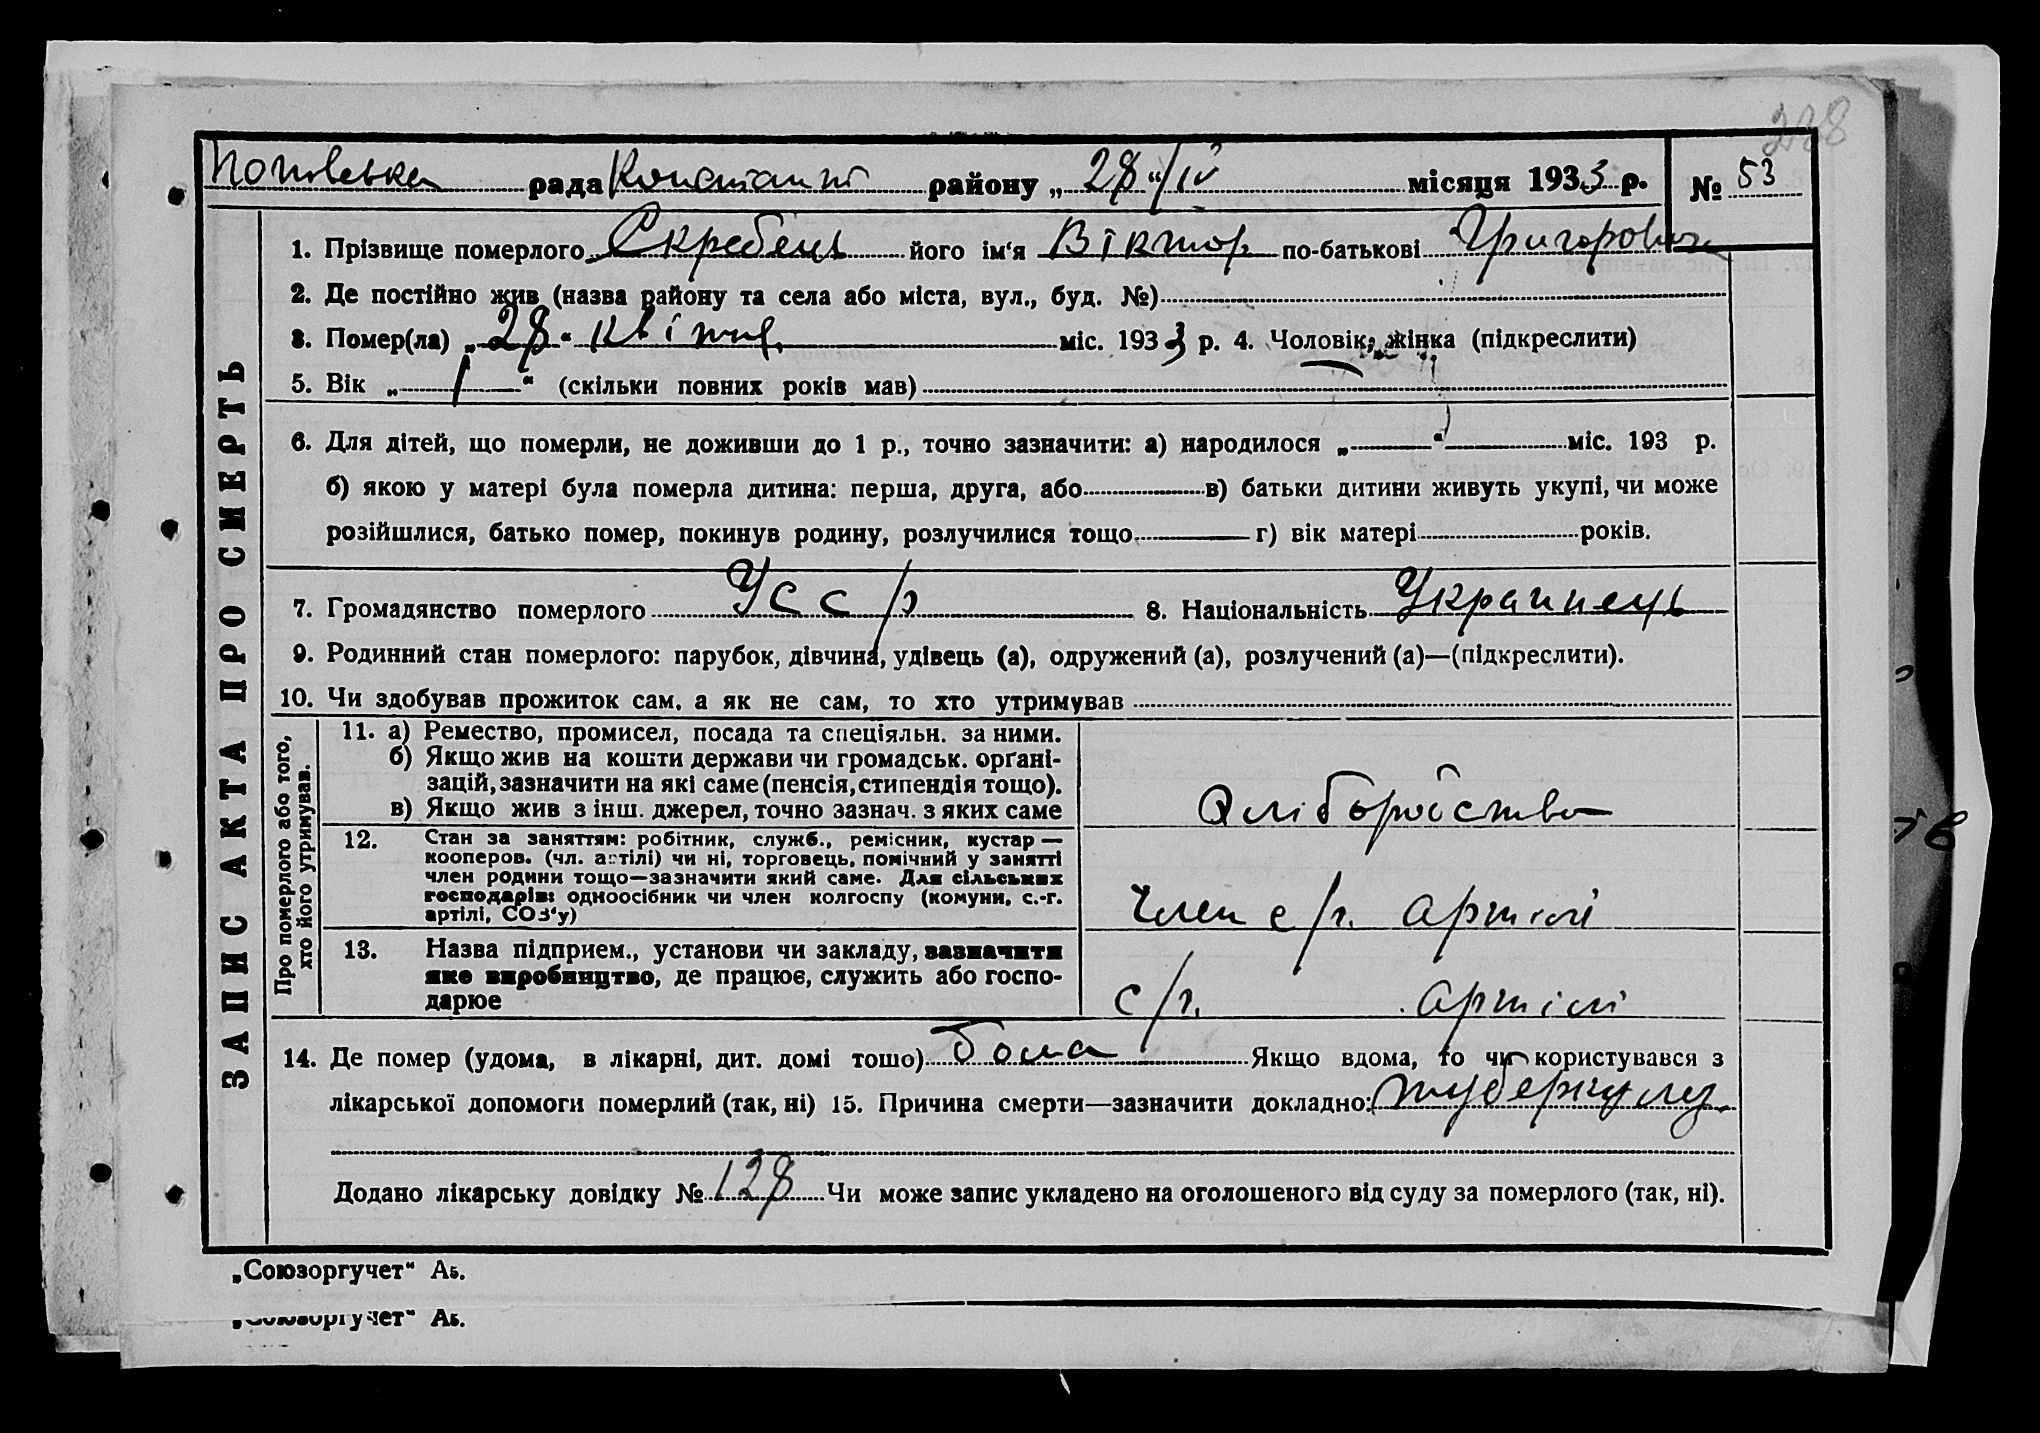 288
Попівська рада Констант району „28“/IV місяця 1933 р. № 53
ЗАПИС АКТА ПРО СМЕРТЬ
1. Прізвище померлого Скребець його ім‘я Віктор по-батькові Григорович
2. Де постійно жив (назва району та села або міста, вул., буд. №)
3. Помер(ла) „28“ квітня міс. 1933 р. 4. Чоловік, жінка (підкреслити)
5. Вік „1“ (скільки повних років мав)
6. Для дітей, що померли, не доживши до 1 р., точно зазначити: а) народилося „ “ міс. 193 р.
б) якою у матері була померла дитина: перша, друга, або в) батьки дитини живуть укупі, чи може
розійшлися, батько помер, покинув родину, розлучилися тощо г) вік матері років.
7. Громадянство померлого УССР 8. Національність Украинець
9. Родинний стан померлого: парубок, дівчина, удівець (а), одружений (а), розлучений (а)—(підкреслити).
10. Чи здобував прожиток сам, а як не сам, то хто утримував
Про померлого або того, хто його утримував.
11. а) Ремество, промисел, посада та спеціяльн. за ними.
б) Якщо жив на кошти держави чи громадськ. орґані-
зацій, зазначити на які саме (пенсія, стипендія тощо).
в) Якщо жив з інш. джерел, точно зазнач. з яких саме
12. Стан за заняттям: робітник, служб., ремісник, кустар —
кооперов. (чл. артілі) чи ні, торговець, помічний у занятті
член родини тощо—зазначити який саме. Для сільських
господарів: одноосібник чи член колгоспу (комуни, с.-г.
артілі, СОЗ‘у)
Член с/г. артілі
13. Назва підприєм., установи чи закладу, зазначити
яке виробництво, де працює, служить або госпо-
дарює
с/г. артілі
14. Де помер (удома, в лікарні, дит. домі тошо) дома Якщо вдома, то чи користувався з
лікарської допомоги померлий (так, ні) 15. Причина смерти—зазначити докладно: туберкулз
Додано лікарську довідку № 128 Чи може запис укладено на оголошеного від суду за померлого (так, ні).
„Союзоргучет“ Аб.
„Союзоргучет“ Аб.